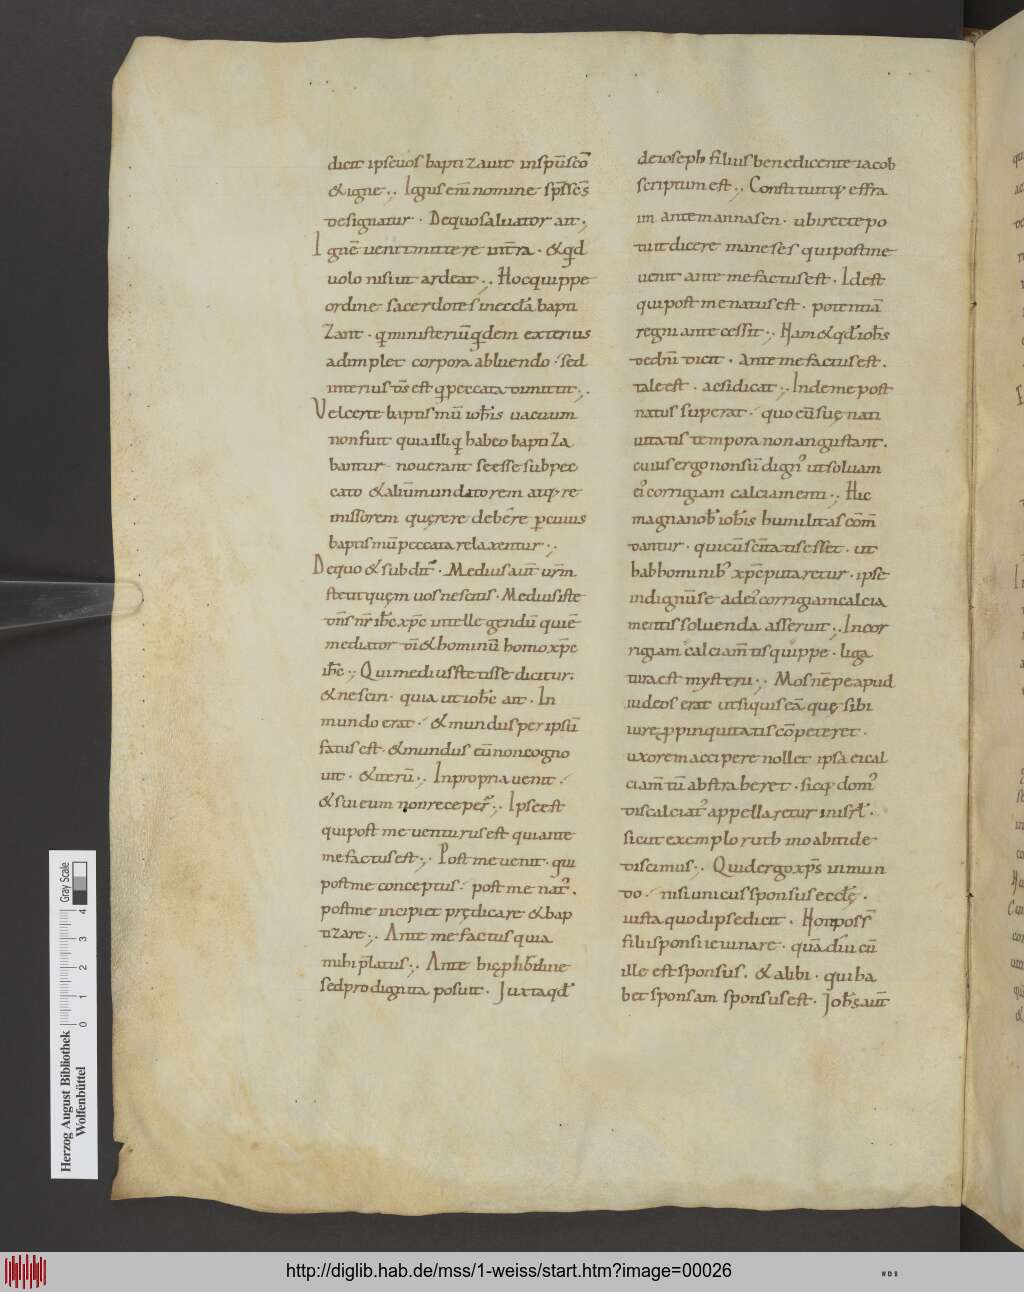 dicit ipse uos baptizauit in spū scō
&igne ·,· Ignis enī nomine sp̄s sc̄s
designatur · De quo saluator ait ·,
Ignē ueni mittere in t̄ra · & qd
uolo nisi ut ardeat ·,· Hoc quippe
ordine sacerdotes in eccl̄a bapti
zant · q ministeriū qdem exterius
adimplet corpora abluendo · sed
interius d̄s est q peccata dimittit ·,·
Vel certe baptismū ioh̄is uacuum
non fuit quia illi q ab eo baptiza
bantur · nouerant se esse sub pec
cato & aliū mundatorem atq; re
missorem quęrere deb̄re p cuius
baptismū peccata relaxentur ·,·
De quo & subdit · Medius aut̄ ur̄m
stetit quęm uos nescitis · Medius iste
dn̄s nr̄ ih̄c xp̄c intellegendū qui ē
mediator dī & hominū homo xp̄c
ih̄c ·,· Qui medius stetisse dicitur ·,
& nescin · quia ut ioh̄c ait · In
mundo erat · & mundus per ipsū
fatus est · & mundus eū non cogno
uit · & iterū ·,· In propria uenit ·
& sui eum non recepeř ·,· Ipse est
qui post me uenturus est qui ante
me factus est ·,· Post me uenit · qui
post me conceptus · post me nat᾽ ·
post me incipiet prędicare & bap
tizare ·,· Ante me factus quia
mihi p̄latus ·,· Ante hic p hibitione
sed pro dignita posuit · Juxta qd
de ioseph filius benedicente iacob
scriptum est ·,· Constituitq; effra
im ante mannasen · ubi recte po
tuit dicere maneses qui post me
uenit ante me factus est · Id est
qui post me natus est · potentiā
regni antecessit ·,· Nam & qd ioh̄s
de dn̄i dicit · Ante me factus est ·
tale est · ac si dicat ·,· Inde me post
natus superat · quo eū suę nati
uitatis tempora non angustant ·
cuius ergo non sū dign᾽ ut soluam
ei᾽ corrigiam calciamenti ·,· Hic
magna nob̄ ioh̄is humilitas cōm̄
dantur · qui cū sc̄itatis esset · ut
hab hominib᾽ xp̄c putaretur · ipse
indignū se ad ei᾽ corrigiam calcia
mentis soluenda asseruit ·,· In cor
rigiam calciam̄tis quippe · liga
tura est mysterii ·,· Mos nē pe apud
iudeos erat ut si quis eā quę sibi
iure ppinquitatis cōpeteret ·
uxorem accipere nollet ipsa ei cal
ciam̄tū abstraheret · sicq; dom᾽
discalciat᾽ appellaretur in isrl ·
sicut exemplo ruth moabitide
discimus ·,· Quid ergo xp̄s in mun
do · nisi unicus sponsus eccl̄ę ·
iuxta quod ipse dicit · Non poss̄
filii sponsi ieiunare · quādiu cū
ille est sponsus · & alibi · qui ha
bet sponsam sponsus est · Joh̄s aut̄
Herzog August Bibliothek
Wolfenbüttel
Gray Scale
0 1 2 3 4
http://diglib.hab.de/mss/1-weiss/start.htm?image=00026